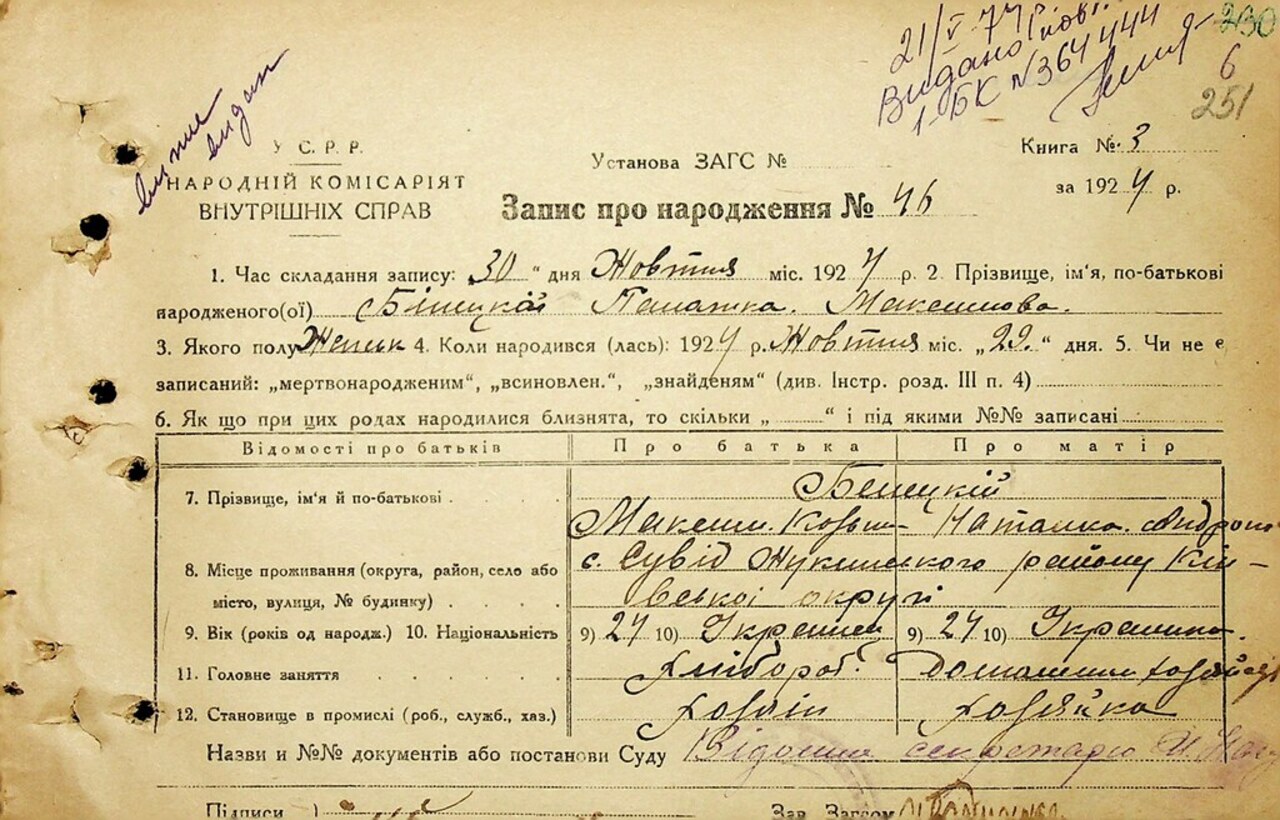 21/V 77 р. повт.
Видано
1-БК №364444
230
6
251
видан
У С. Р. Р.
НАРОДНІЙ КОМІСАРІЯТ
ВНУТРІШНІХ СПРАВ
Установа ЗАГС №
Книга №. 3
за 1924 р.
Запис про народження № 46
1. Час складання запису: „30“ дня Жовтня міс. 1924 р. 2. Прізвище, ім'я, по-батькові
народженого(ої) Білецкій Палажка. Максимова.
3. Якого полу Женськ 4. Коли народився (лась): 1924 р. Жовтня міс. „29.“ дня. 5. Чи не є
записаний: „мертвонародженим“, „всиновлен.“, „знайденям“ (див. Інстр. розд. III п. 4)
6. Як що при цих родах народилися близнята, то скільки „ “ і під якими №№ записані
Відомості про батьків Про батька Про матір
7. Прізвище, ім'я й по-батькові Білецкій
Максим. Козьм— Наталка.
8. Місце проживання (округа, район, село або с. Сувід Жукинського району Киї—
місто, вулиця, № будинку) вської округі
9. Вік (років од народж.) 10. Національність 9) 24 10) Українец 9) 24 10) Українка.
11. Головне заняття Хлібороб. Домашнем
12. Становище в промислі (роб., служб., хаз.) Хозяін Хозяйка
Назви и №№ документів або постанови Суду Відомих секретарю
Підписи ) Зав. Загсом